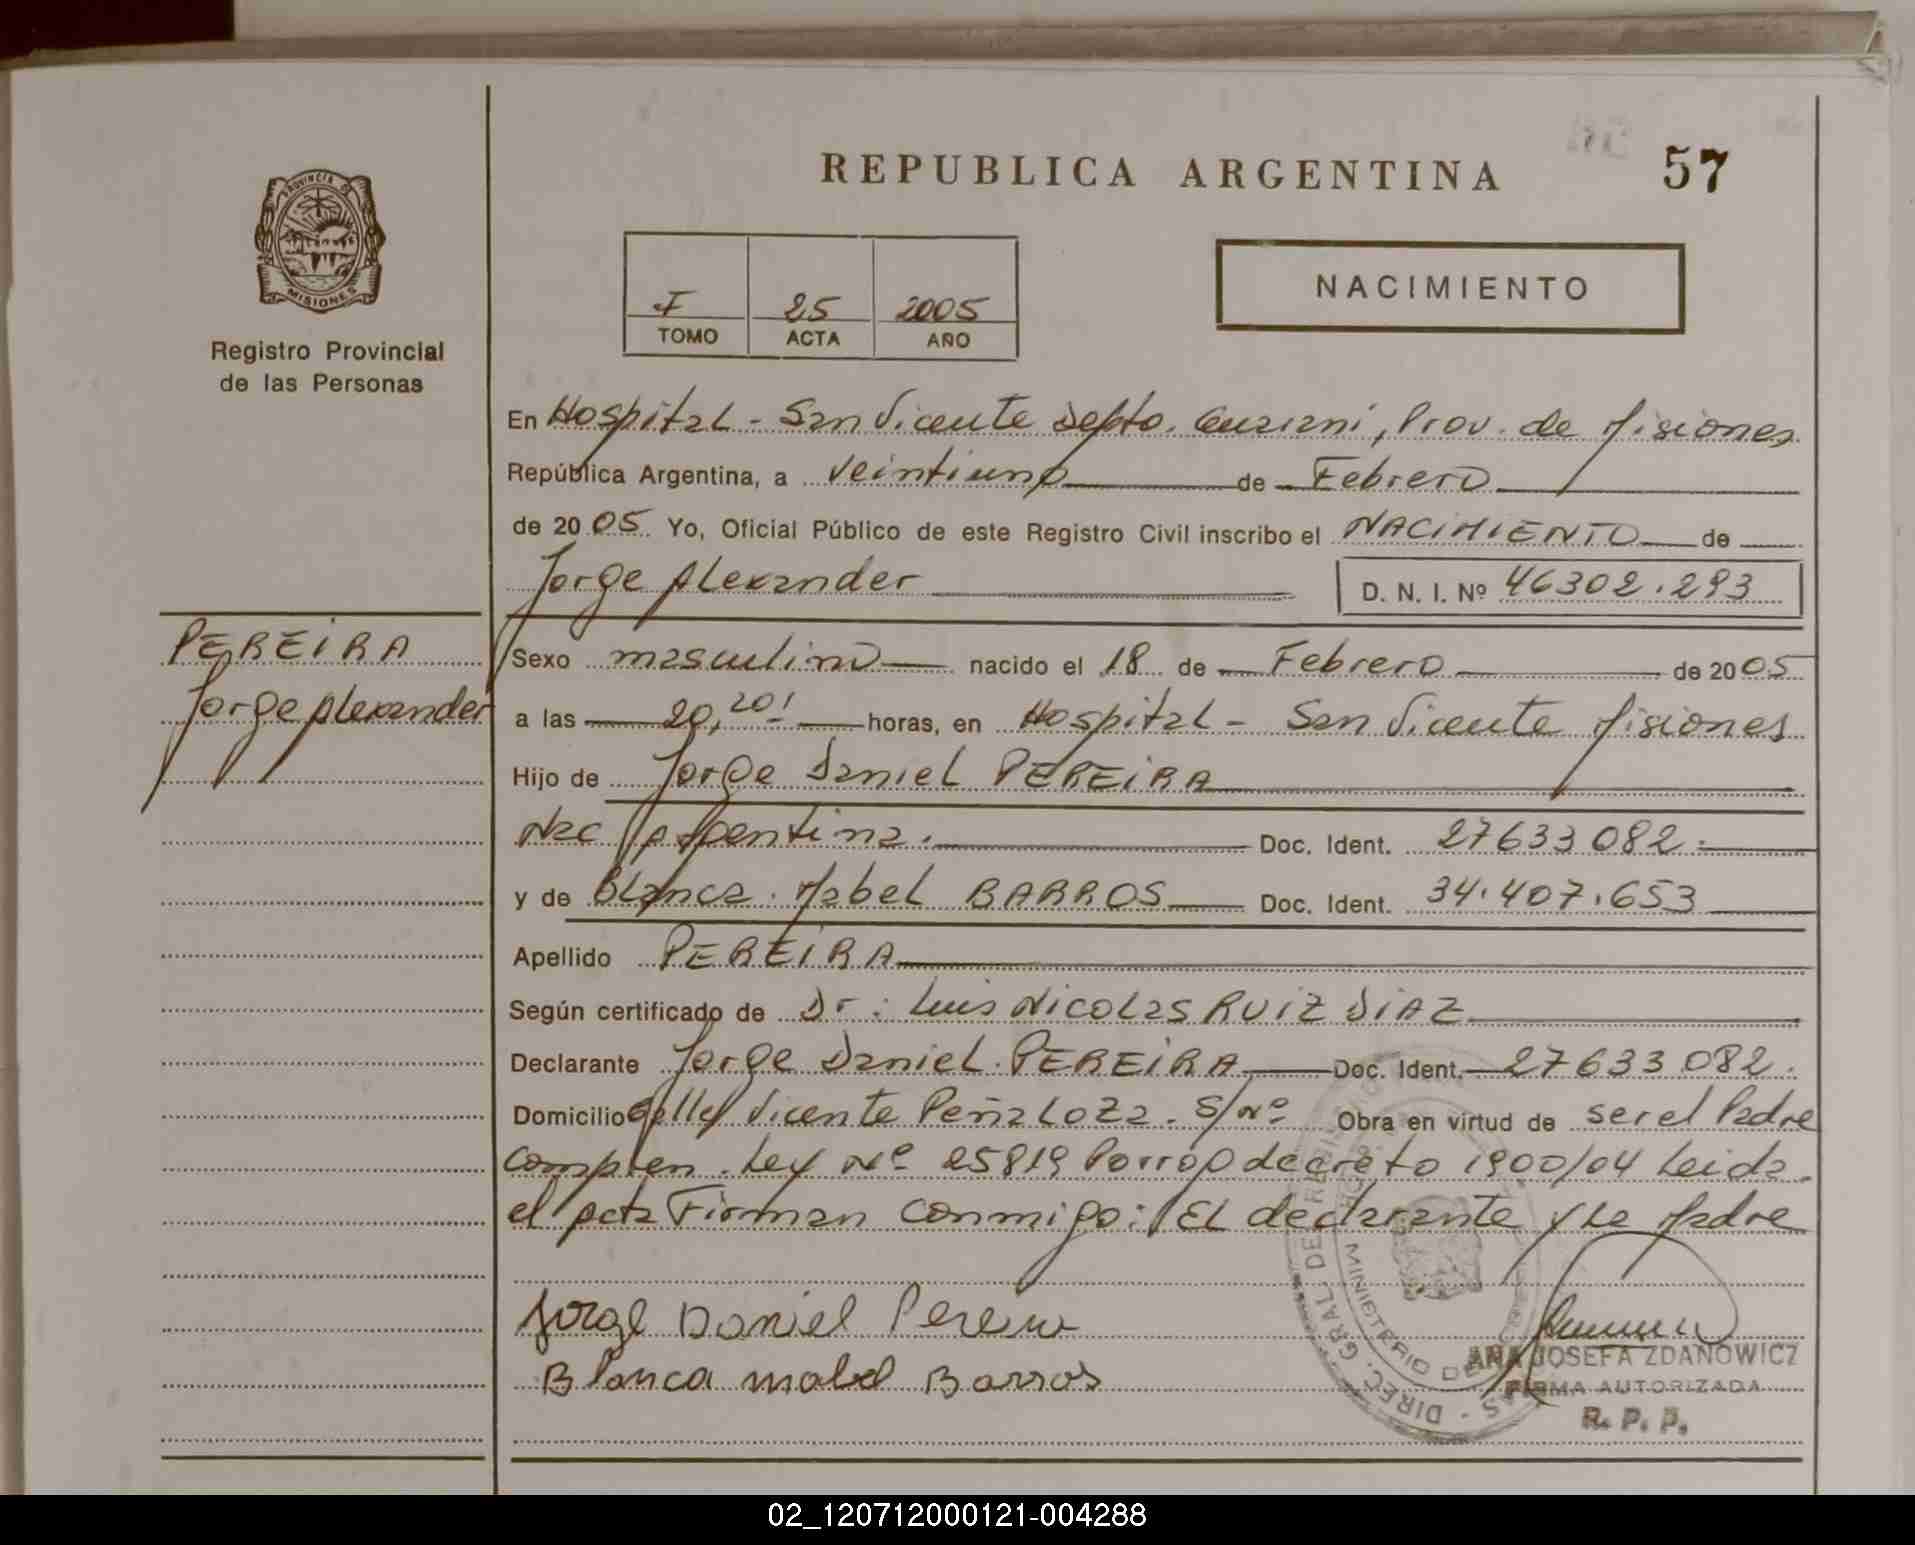 REPUBLICA ARGENTINA
57
PROVINCIA DE
MISIONES
Registro Provincial
de las Personas
F 25 2005
TOMO ACTA AÑO
NACIMIENTO
En Hospital - San Vicente Depto. Guarani, Prov. de Misiones
República Argentina, a veintiuno de Febrero
de 2005 Yo, Oficial Público de este Registro Civil inscribo el NACIMIENTO de
Jorge Alexander D. N. I. Nº 46302.293
PEREIRA
Jorge Alexander
Sexo masculino nacido el 18 de Febrero de 2005
a las 20,20' horas, en Hospital - San Vicente Misiones
Hijo de Jorge Daniel PEREIRA
Nac Argentina. Doc. Ident. 27633082.
y de Blanca Mabel BARROS Doc. Ident. 34.407.653
Apellido PEREIRA
Según certificado de Dr: Luis Nicolas RUIZ DIAZ
Declarante Jorge Daniel PEREIRA Doc. Ident. 27633082.
Domicilio Calle Vicente Peñaloza. S/Nº Obra en virtud de ser el Padre
Ley Nº 25819 decreto 1900/04 Leida
el acta Firman conmigo: EL declarante y La Madre
Jorge Daniel Pereira
Blanca mabel Barros
DIREC. GRAL. DE
MINISTERIO DE
ANA JOSEFA ZDANOWICZ
FIRMA AUTORIZADA
R. P. P.
02_120712000121-004288